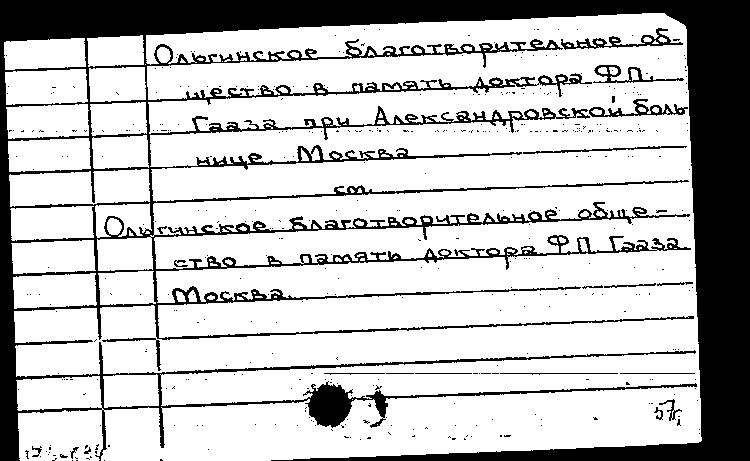 Ольгинское благотворительное об-
щество в память доктора Ф.П.
Гааза при Александровской боль
нице. Москва
см.
Ольгинское благотворительное обще-
ство в память доктора Ф.П. Гааза
Москва.